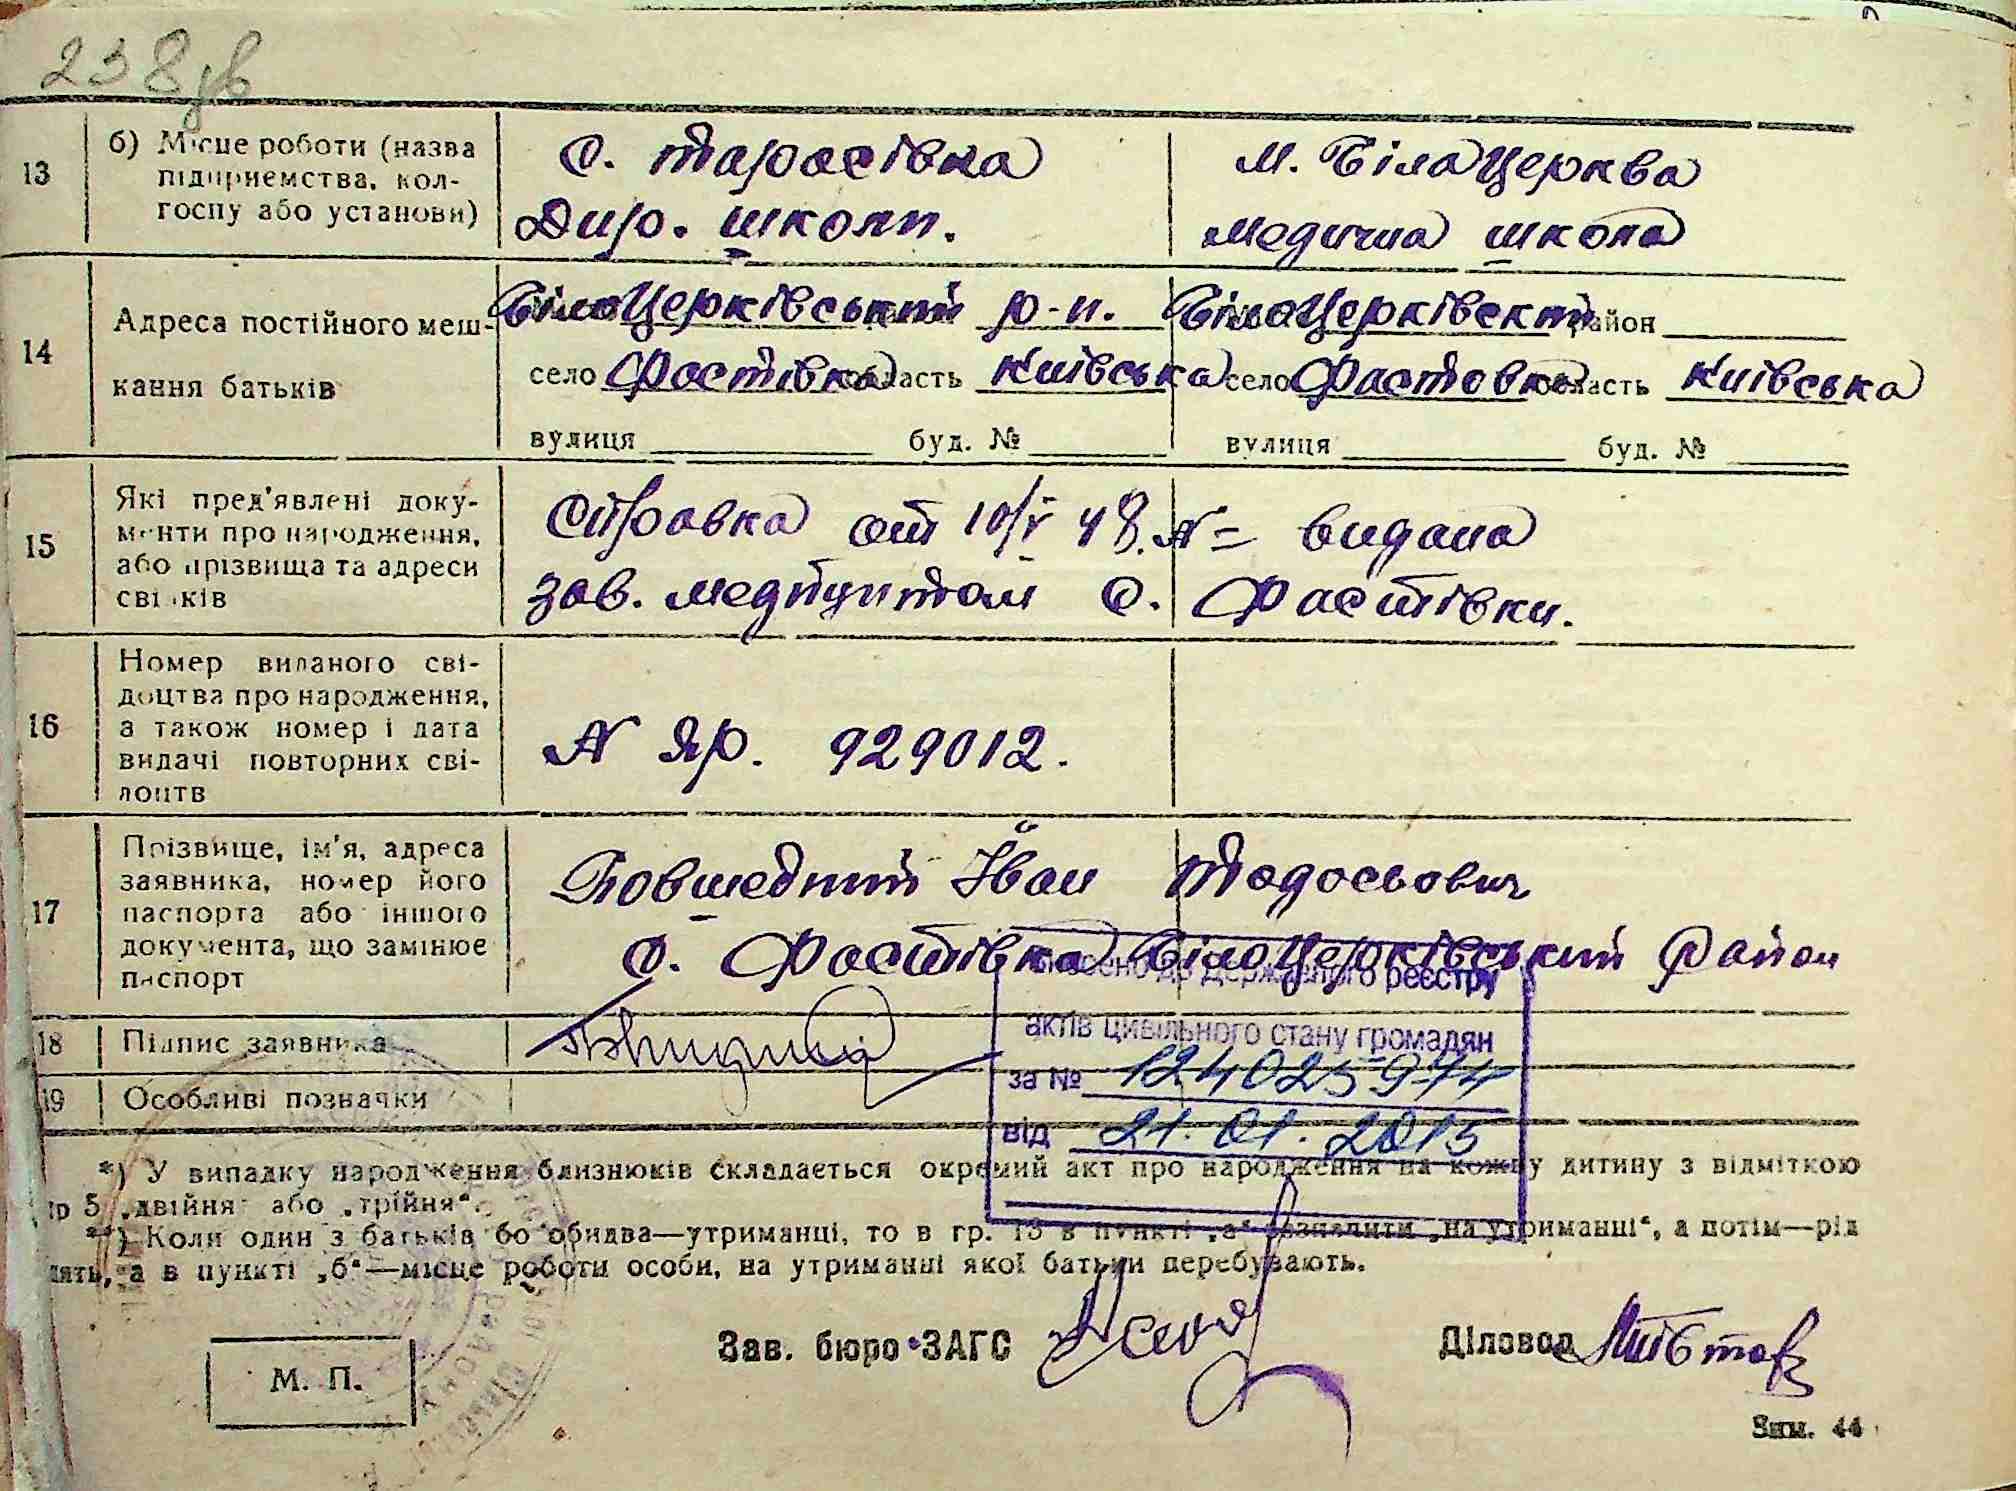 238 зв
13 б) Місце роботи (назва підприємства, колгоспу або установи)
с. Тарасівка
Дир. школи.
м. Біла Церква
Медична школа
14 Адреса постійного мешкання батьків
БілоЦерківський р-н.
село Фастівка область Київська
вулиця буд. №
БілоЦерківський район
село Фастовка область Київська
вулиця буд. №
15 Які пред'явлені документи про народження, або прізвища та адреси свідків
Справка от 10/V 48. N= видана
зав. медпунктом с. Фастівки.
16 Номер виданого свідоцтва про народження, а також номер і дата видачі повторних свідоцтв
N ЯР. 929012.
17 Прізвище, ім'я, адреса заявника, номер його паспорта або іншого документа, що замінює паспорт
Повшедний Іван Тодосьович
с. Фастівка БілоЦерківський район
18 Підпис заявника
19 Особливі позначки
внесено до державного реєстру
актів цивільного стану громадян
за №
від 21.01.2015
*) У випадку народження близнюків складається окремий акт про народження на кожну дитину з відміткою
гр 5 „двійня" або „трійня".
**) Коли один з батьків бо обидва—утриманці, то в гр. 13 в пункті „а" зазначити „на утриманні", а потім—рід
занять, а в пункті „б"—місце роботи особи, на утриманні якої батьки перебувають.
М. П.
Зав. бюро ЗАГС
Діловод
Зам. 44